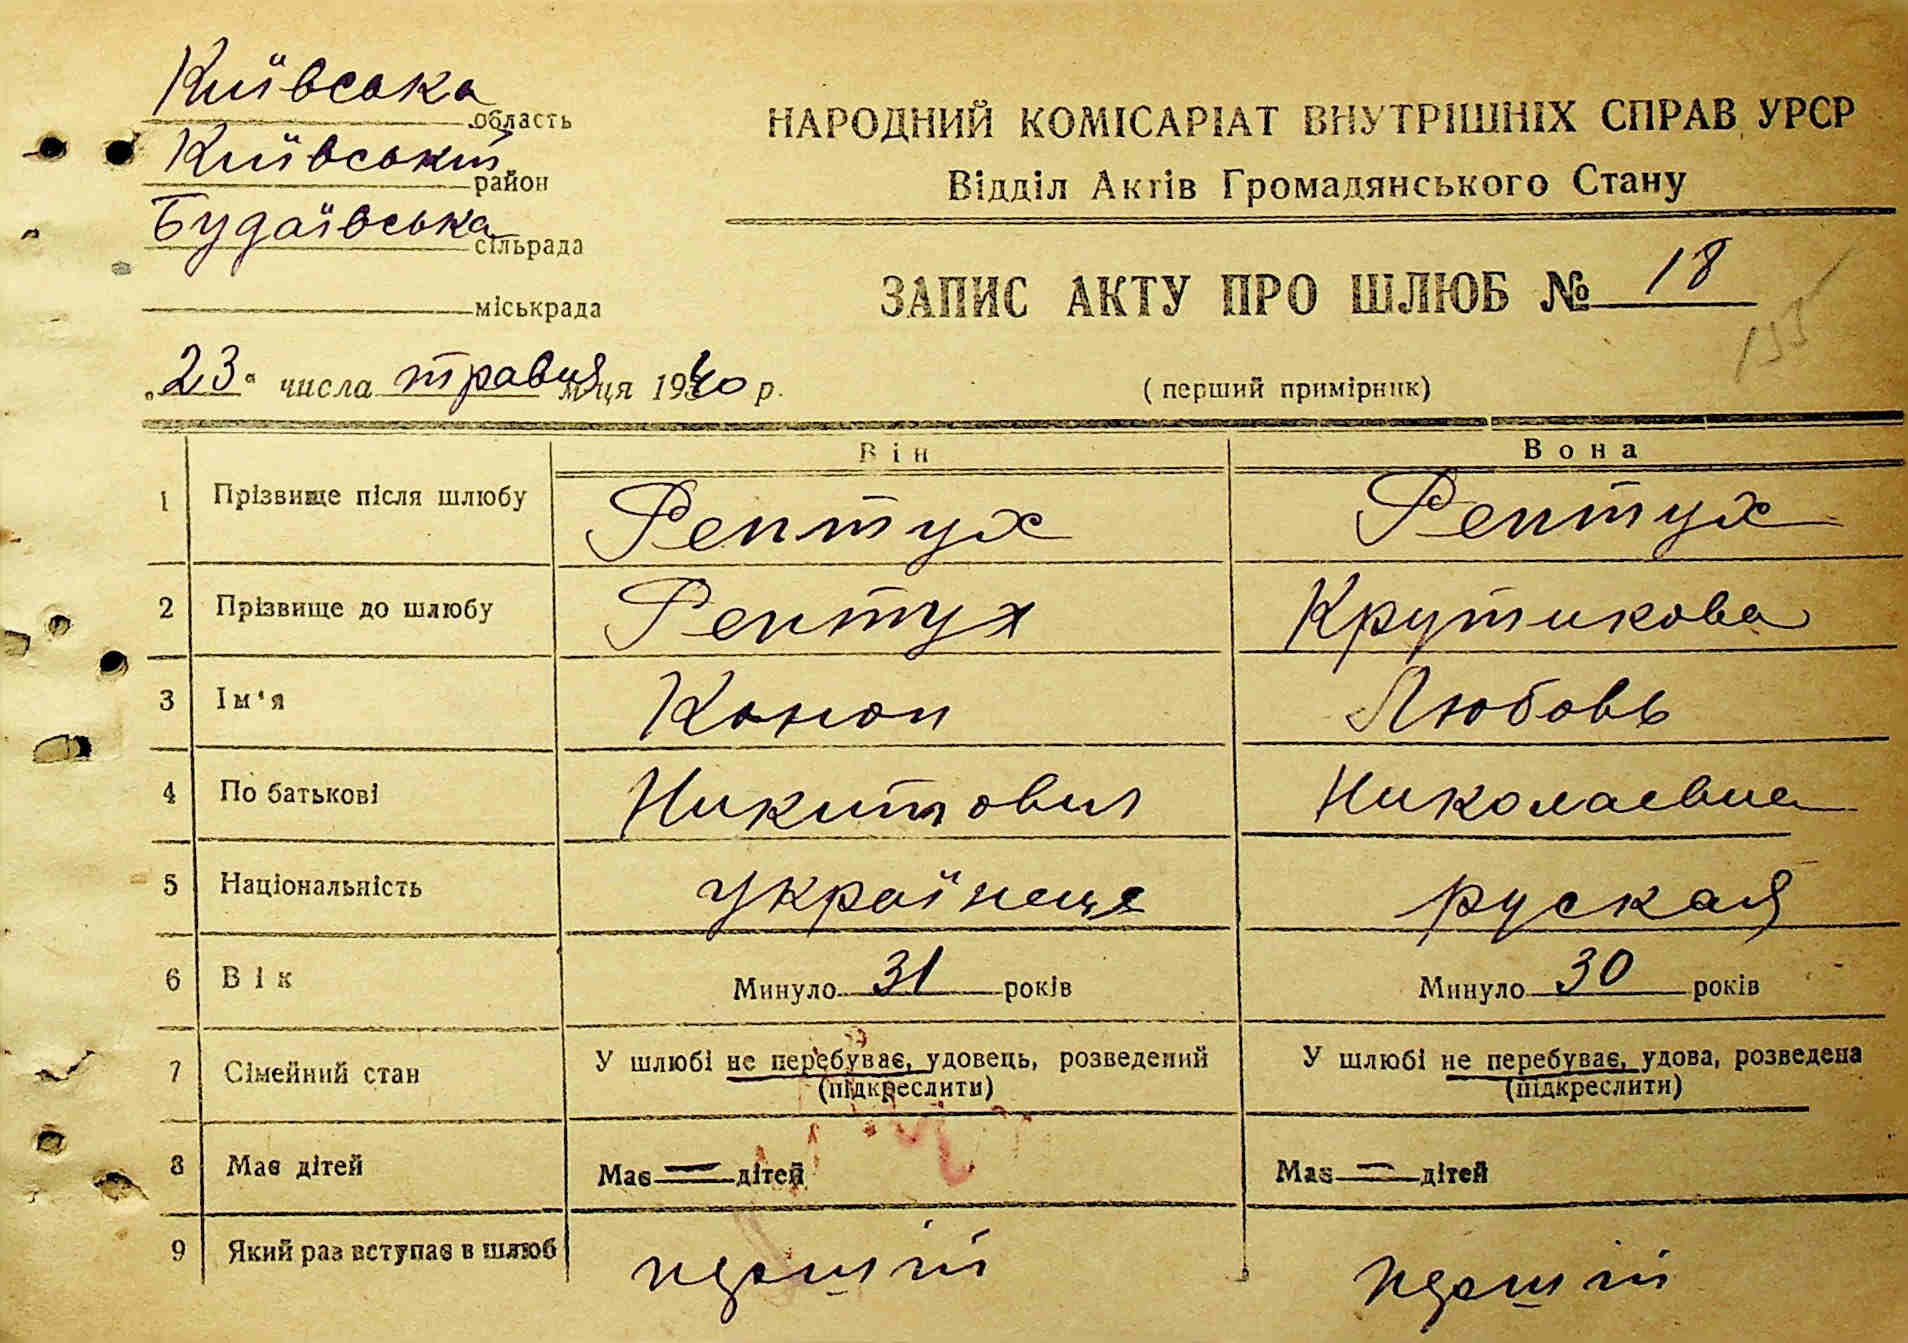 Київська область
Київський район
Будаївська сільрада
міськрада
НАРОДНИЙ КОМІСАРІАТ ВНУТРІШНІХ СПРАВ УРСР
Відділ Актів Громадянського Стану
ЗАПИС АКТУ ПРО ШЛЮБ № 18
„23“ числа травня м-ця 1940 р.
(перший примірник)
Він Вона
1 Прізвище після шлюбу Рептух Рептух
2 Прізвище до шлюбу Рептух Крутикова
3 Ім'я Конон Любовь
4 По батькові Никитович Николаевна
5 Національність українець руская
6 Вік Минуло 31 років Минуло 30 років
7 Сімейний стан У шлюбі не перебуває, удовець, розведений У шлюбі не перебуває, удова, розведена
(підкреслити) (підкреслити)
8 Має дітей Має — дітей Має — дітей
9 Який раз вступає в шлюб